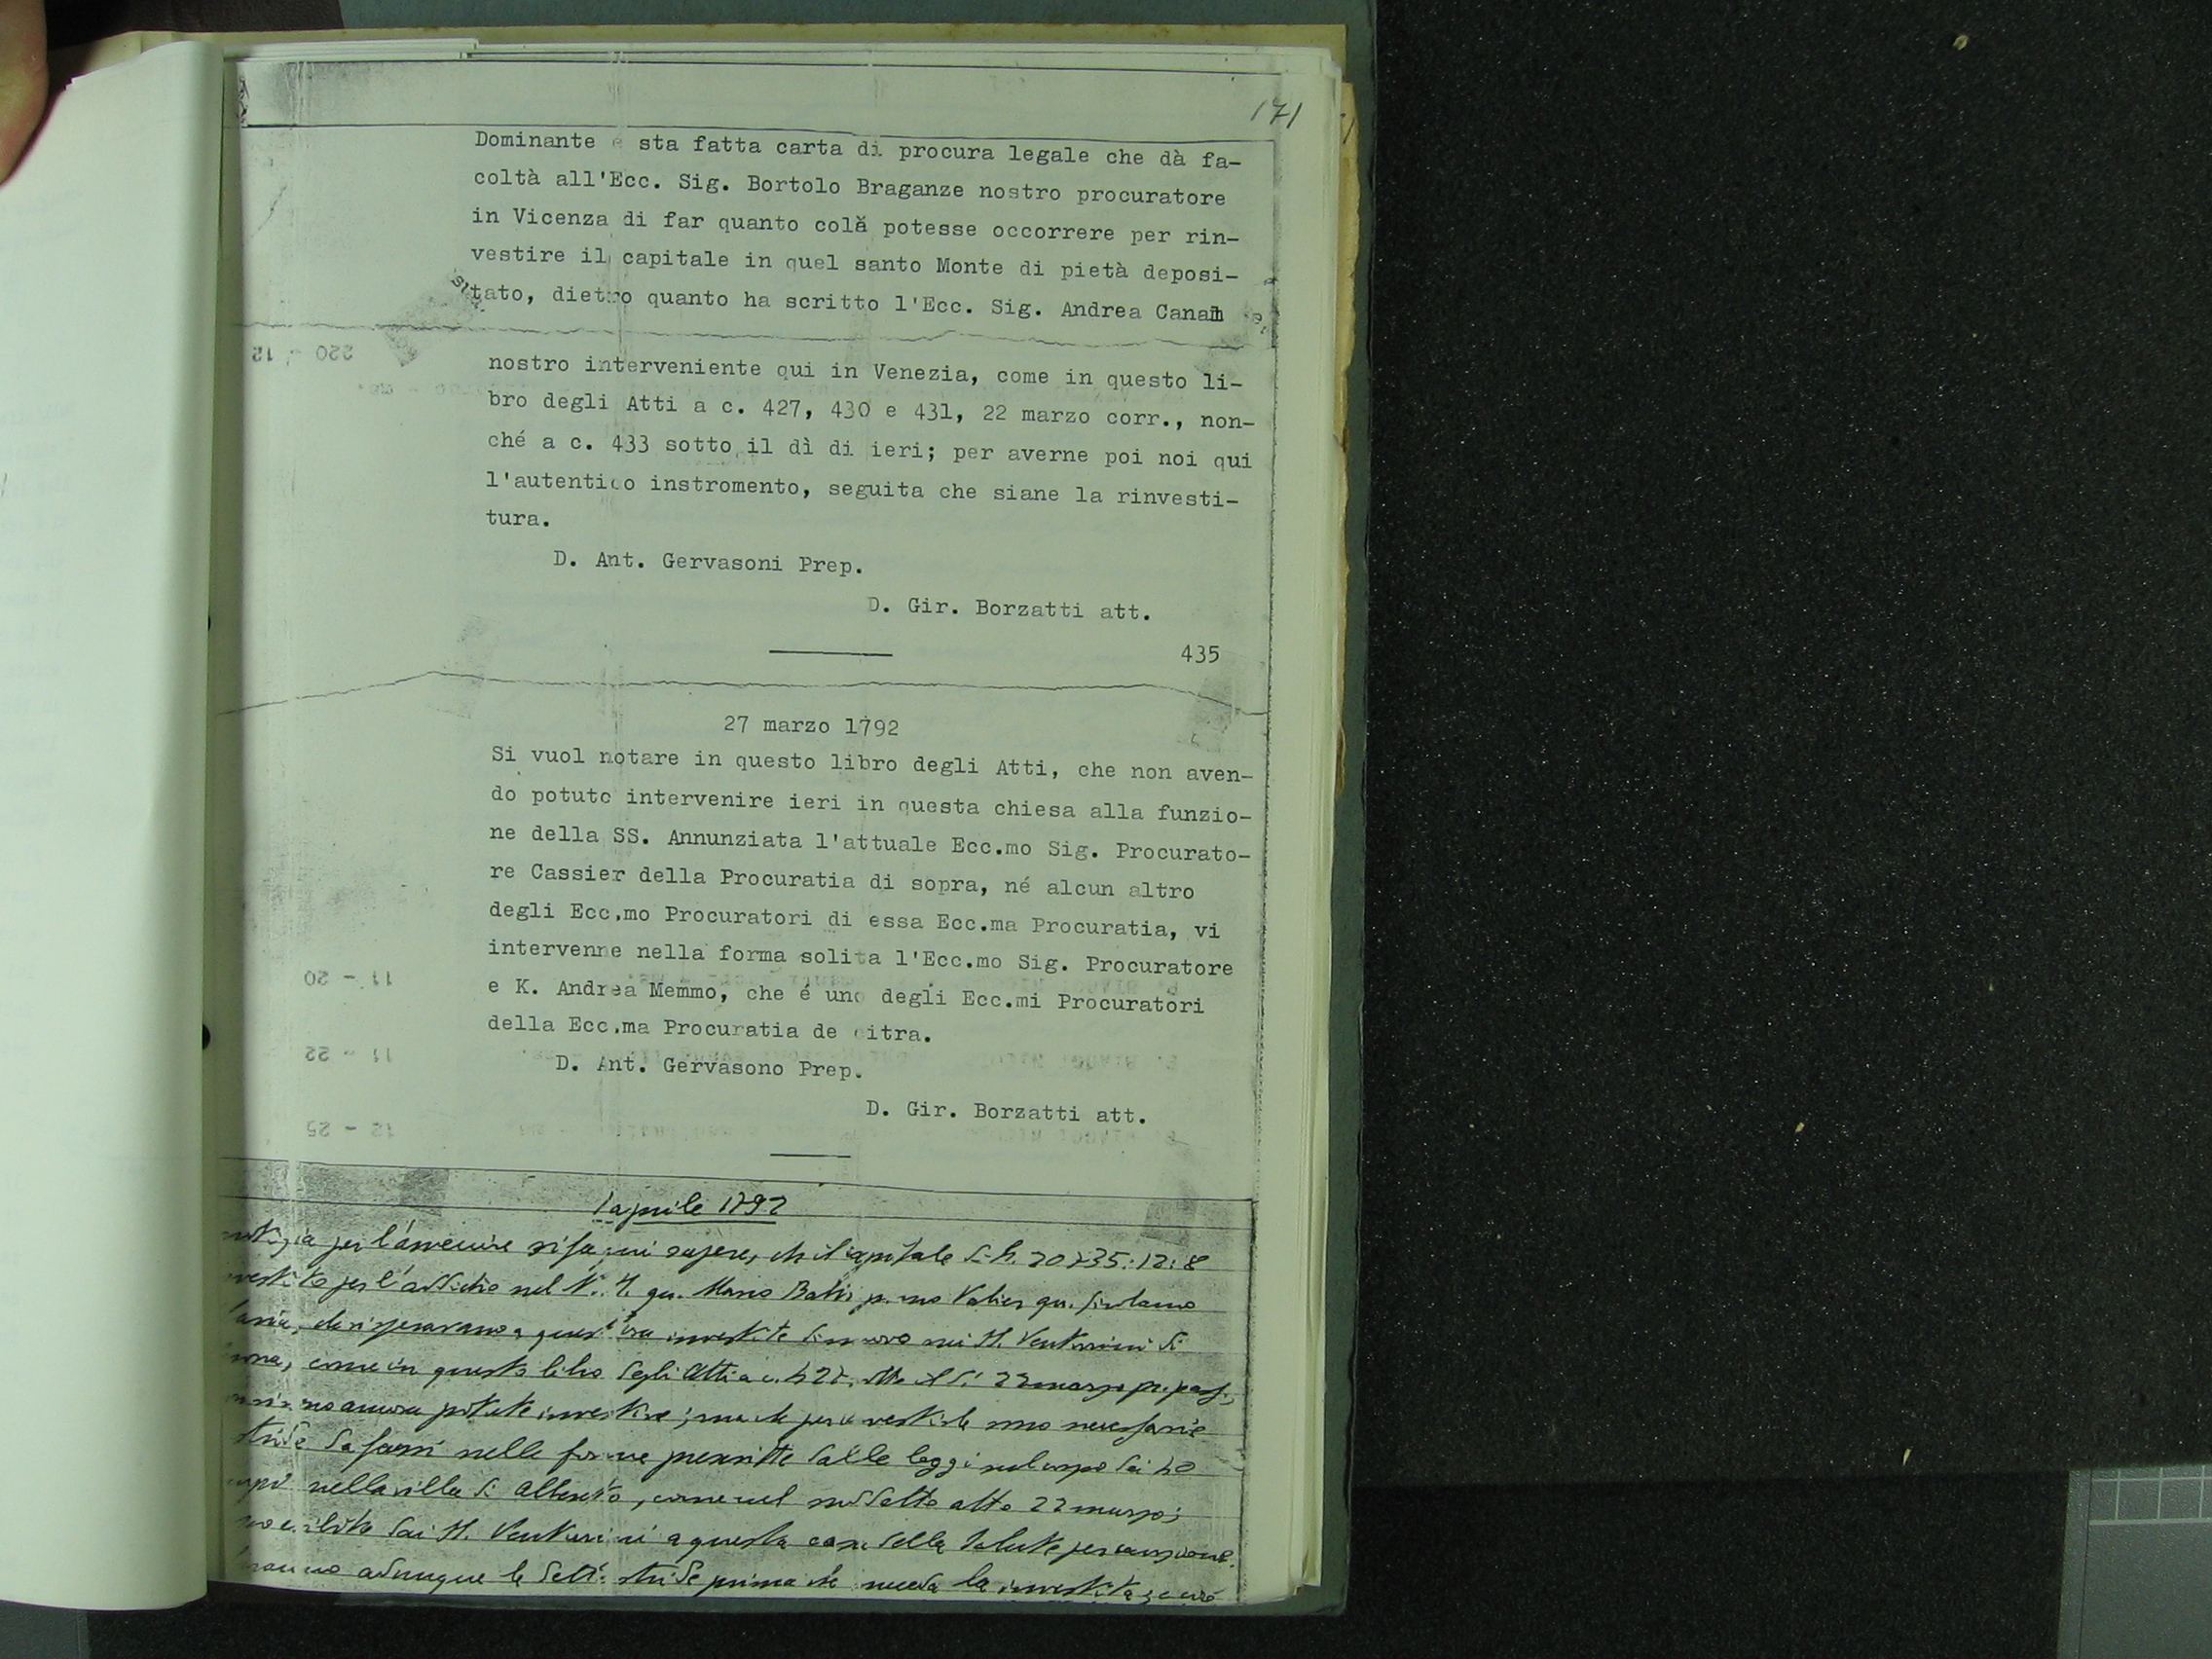 171
Dominante è sta fatta carta di procura legale che dà fa-
coltà all'Ecc. Sig. Bortolo Braganze nostro procuratore
in Vicenza di far quanto colà potesse occorrere per rin-
vestire il capitale in quel santo Monte di pietà deposi-
tato, dietro quanto ha scritto l'Ecc. Sig. Andrea
220 - 12
nostro interveniente qui in Venezia, come in questo li-
bro degli Atti a c. 427, 430 e 431, 22 marzo corr., non-
ché a c. 433 sotto il dì di ieri; per averne poi noi qui
l'autentico instromento, seguita che siane la rinvesti-
tura.
D. Ant. Gervasoni Prep.
D. Gir. Borzatti att.
435
27 marzo 1792
Si vuol notare in questo libro degli Atti, che non aven-
do potuto intervenire ieri in questa chiesa alla funzio-
ne della SS. Annunziata l'attuale Ecc.mo Sig. Procurato-
re Cassier della Procuratia di sopra, né alcun altro
degli Ecc.mo Procuratori di essa Ecc.ma Procuratia, vi
intervenne nella forma solita l'Ecc.mo Sig. Procuratore
11 - 20
e K. Andrea Memmo, che é uno degli Ecc.mi Procuratori
della Ecc.ma Procuratia de citra.
11 - 22
D. Ant. Gervasono Prep.
D. Gir. Borzatti att.
12 - 25
1 aprile 1792
per l'avvenire si fa qui sapere, che il capitale di
per l'addietro nel N. H. qu. Marco Valier qu.
che si speravano a quest'ora investite di nuovo nei SS. Venturini di
come in questo libro degli Atti a c. 427, sotto il dì 22 marzo pr. pass.,
ancora potute investire; ma che per investirle sono necessarie
da farsi nelle forme prescritte dalle leggi sul corpo dei 40
nella villa di come nel suddetto atto 22 marzo;
dai SS. Venturini a questa casa della Salute per cauzione.
adunque le dette stride prima che succeda la investita;